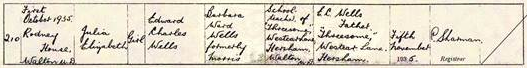 210
First
October 1935.
Rodney
House,
Walton U.D.
Julia
Elizabeth
Girl
Edward
Charles
Wells
Barbara
Ward
Wells
formerly
Morris
School
of
"Threesome,"
Westcar Lane,
Hersham,
Walton
U.D.
E.C. Wells
Father,
"Threesome,"
Westcar Lane,
Hersham.
Fifth
November
1935.
Sharman,
Registrar